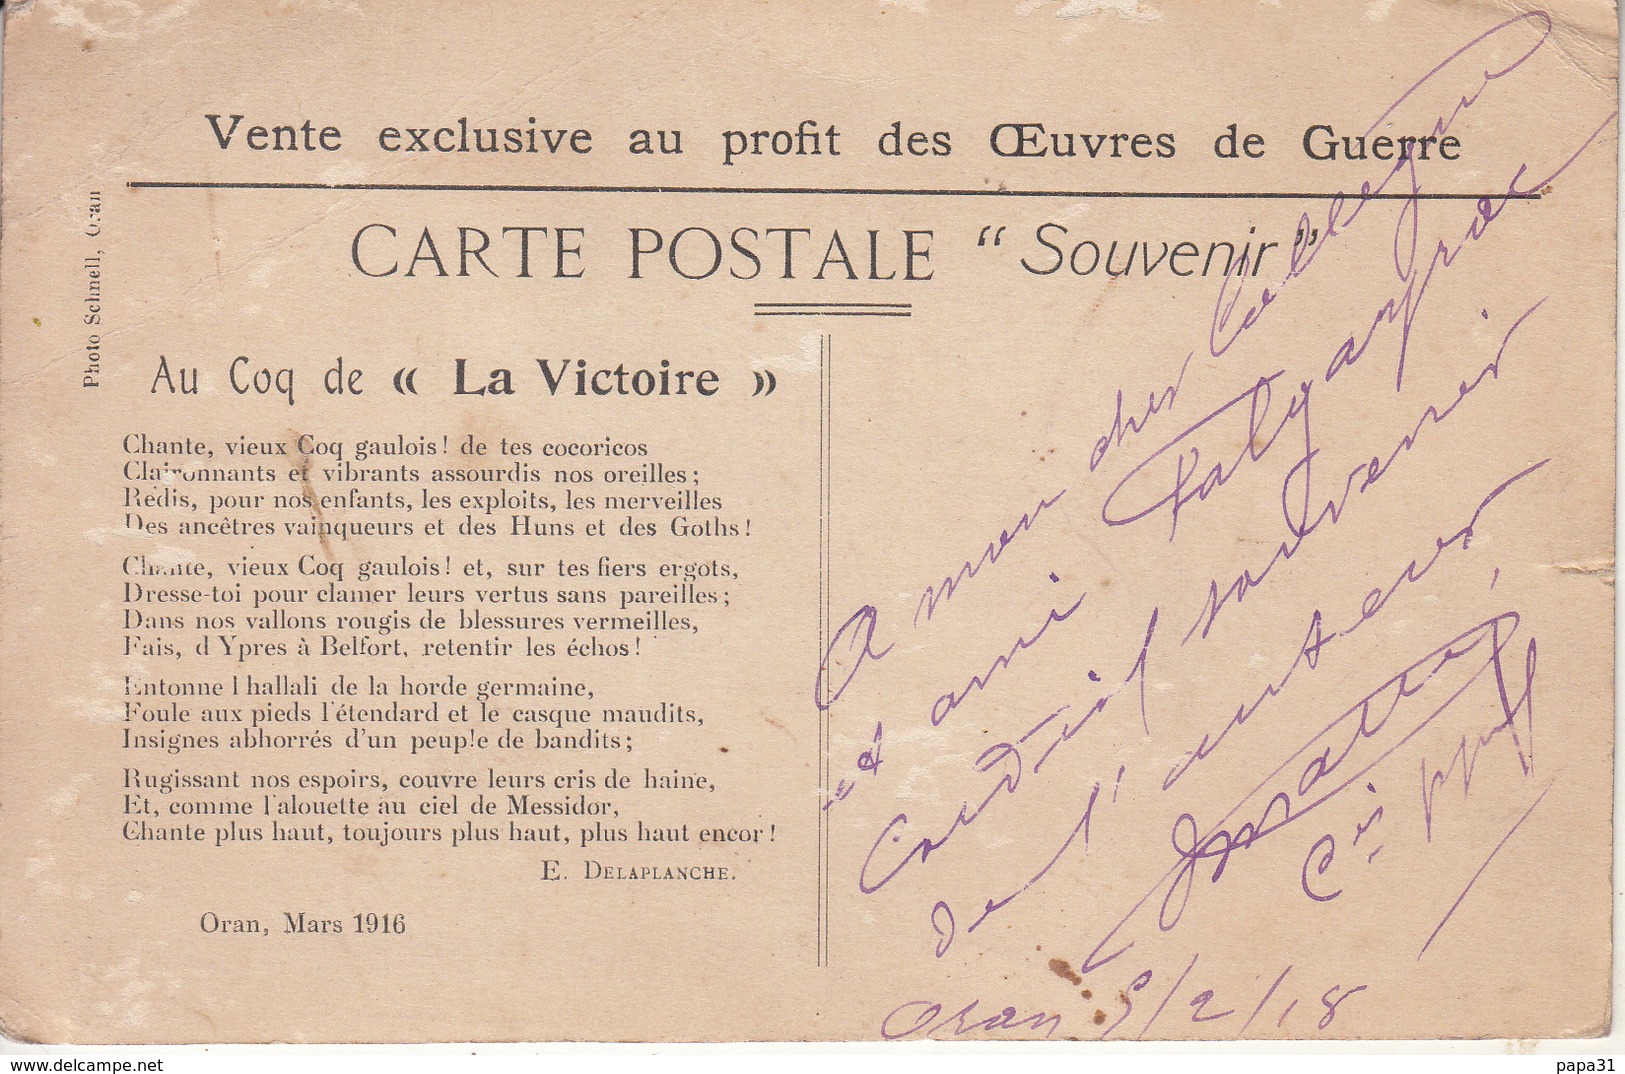 Vente exclusive au profit des Œuvres de Guerre
CARTE POSTALE “ Souvenir ”
Photo Schnell, Oran
Au Coq de « La Victoire »
Chante, vieux Coq gaulois! de tes cocoricos
Claironnants et vibrants assourdis nos oreilles;
Redis, pour nos enfants, les exploits, les merveilles
Des ancêtres vainqueurs et des Huns et des Goths!
Chante, vieux Coq gaulois! et, sur tes fiers ergots,
Dresse-toi pour clamer leurs vertus sans pareilles;
Dans nos vallons rougis de blessures vermeilles,
Fais, d'Ypres à Belfort, retentir les échos!
Entonne l'hallali de la horde germaine,
Foule aux pieds l'étendard et le casque maudits,
Insignes abhorrés d'un peuple de bandits;
Rugissant nos espoirs, couvre leurs cris de haine,
Et, comme l'alouette au ciel de Messidor,
Chante plus haut, toujours plus haut, plus haut encor!
E. DELAPLANCHE.
Oran, Mars 1916
A mon cher Collègue
et ami
Cordial souvenir
de l'auteur
Oran 5/2/18
papa31